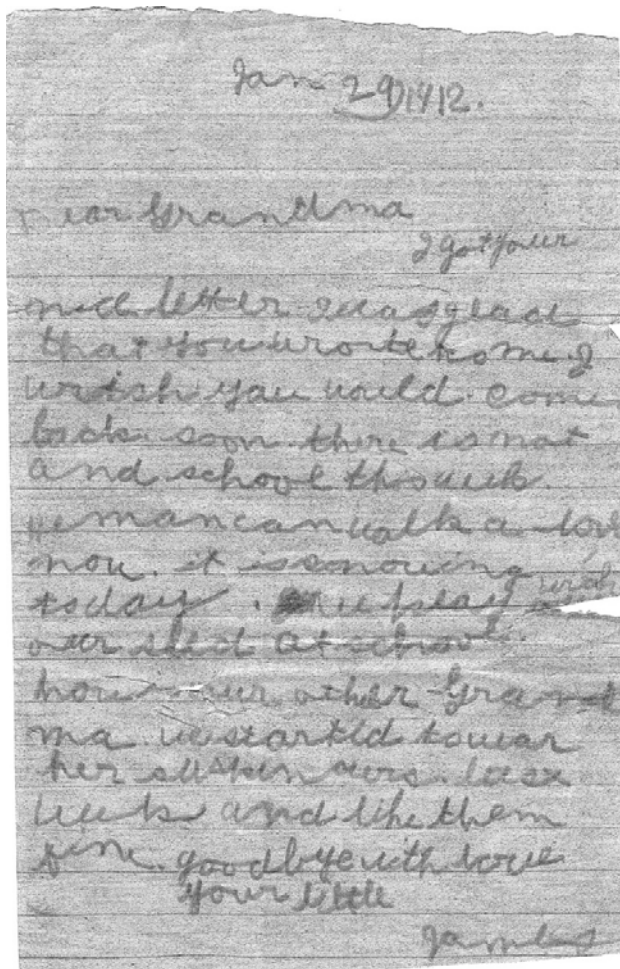 Jan 29, 1912.
Dear Grandma
I got your
nice letter I was glad
that you wrote to me. I
wish you would come
back soon. there is not
and school this week.
man can walk a
now. it is snowing
today. we play with
our sled at school.
how our other Grand
ma. we started to wear
her last
week and like them
fine. good bye with love
your little
James